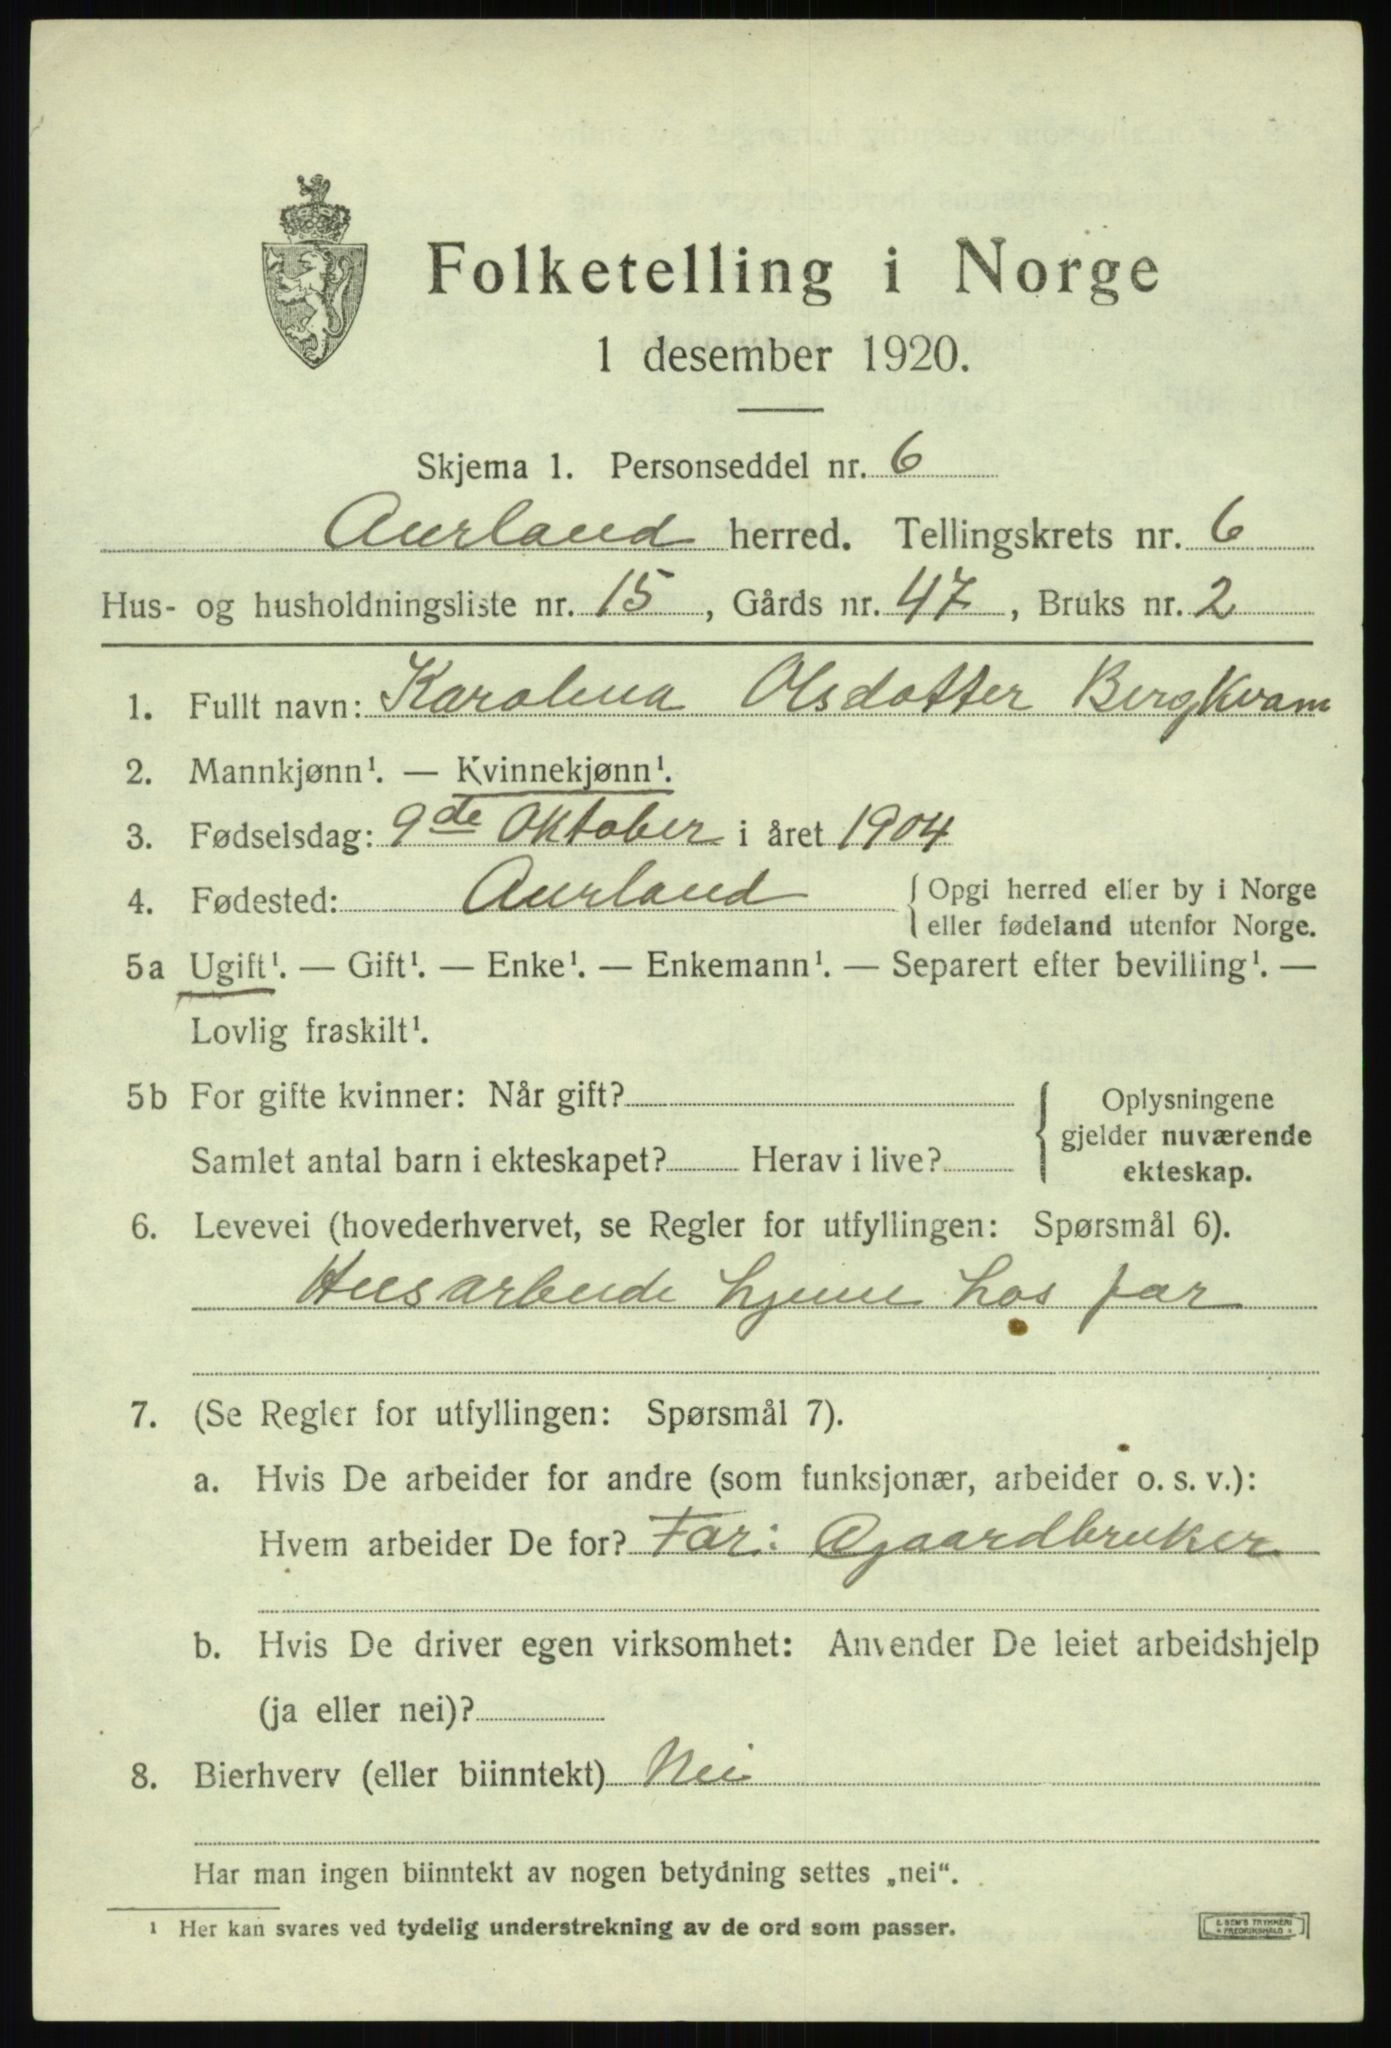 Folketelling i Norge
1 desember 1920.
Skjema 1. Personseddel nr. 6
Aurland herred. Tellingskrets nr. 6
Hus- og husholdningsliste nr. 15, Gårds nr. 47, Bruks nr. 2
1. Fullt navn: Karolina Olsdotter Bergkvam
2. Mannkjønn¹. — Kvinnekjønn¹.
3. Fødselsdag: 9de Oktober i året 1904
4. Fødested: Aurland { Opgi herred eller by i Norge
eller fødeland utenfor Norge.
5a Ugift¹. — Gift¹. — Enke¹. — Enkemann¹. — Separert efter bevilling¹. —
Lovlig fraskilt¹.
5b For gifte kvinner: Når gift?
Samlet antal barn i ekteskapet? Herav i live?
{ Oplysningene
gjelder nuværende
ekteskap.
6. Levevei (hovederhvervet, se Regler for utfyllingen: Spørsmål 6).
Husarbeide hjeme hos far
7. (Se Regler for utfyllingen: Spørsmål 7).
a. Hvis De arbeider for andre (som funksjonær, arbeider o. s. v.):
Hvem arbeider De for? Far: Gaardbruker
b. Hvis De driver egen virksomhet: Anvender De leiet arbeidshjelp
(ja eller nei)?
8. Bierhverv (eller biinntekt) Nei
Har man ingen biinntekt av nogen betydning settes „nei“.
¹ Her kan svares ved tydelig understrekning av de ord som passer.
E. SEM'S TRYKKERI
FREDRIKSHALD